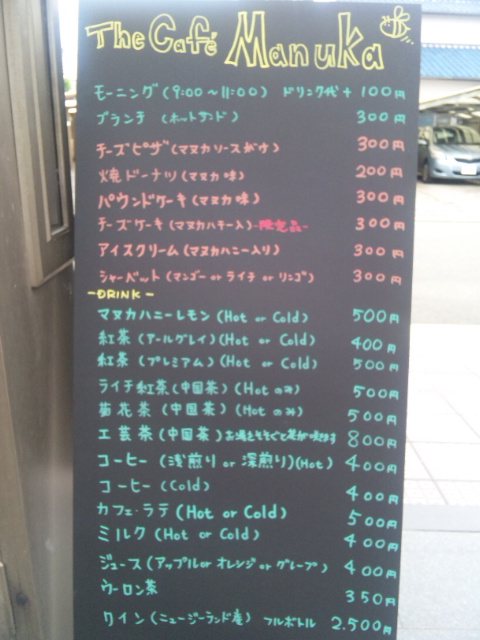 The Café Manuka
モーニング (9:00〜11:00) ドリンク代 + 100円
ブランチ (ホットサンド) 300円
チーズピザ (マヌカソースがけ) 300円
焼ドーナツ (マヌカ味) 200円
パウンドケーキ (マヌカ味) 300円
チーズケーキ (マヌカハチー入) -限定品- 300円
アイスクリーム (マヌカハニー入り) 300円
シャーベット (マンゴー or ライチ or リンゴ) 300円
-DRINK-
マヌカハニーレモン (Hot or Cold) 500円
紅茶 (アールグレイ) (Hot or Cold) 400円
紅茶 (プレミアム) (Hot or Cold) 500円
ライチ紅茶 (中国茶) (Hot のみ) 500円
菊花茶 (中国茶) (Hot のみ) 500円
工芸茶 (中国茶) お湯をそそぐと花が咲きます 800円
コーヒー (浅煎り or 深煎り) (Hot) 400円
コーヒー (Cold) 400円
カフェ・ラテ (Hot or Cold) 500円
ミルク (Hot or Cold) 400円
ジュース (アップル or オレンジ or グレープ) 400円
ウーロン茶 350円
ワイン (ニュージーランド産) フルボトル 2.500円